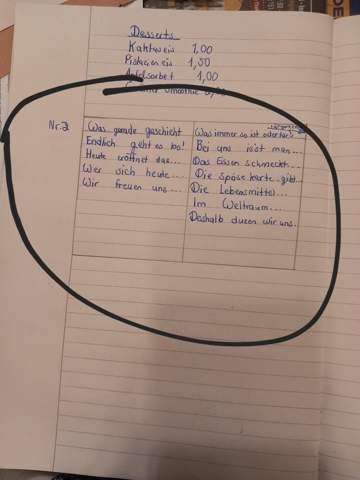 Desserts
Kakteneis 1,00
1,50
Apfelsorbet 1,00
Smoothie
Nr. 2
Was gerade geschieht
Endlich geht es los!
Heute eröffnet das...
Wer sich heute...
Wir freuen uns...
Was immer so ist oder
Bei uns isst man...
Das Essen schmeckt...
Die Speisekarte gibt...
Die Lebensmittel...
Im Weltraum...
Deshalb duzen wir uns.